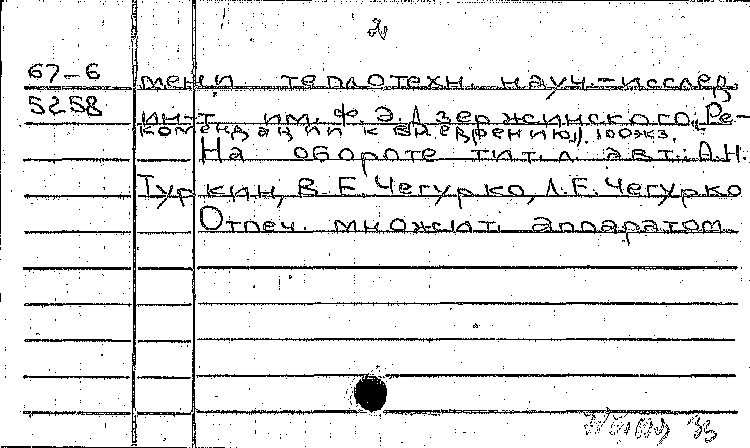 2
67-6
мени теплотехн. науч.-исслед.
5258
ин-т им. Ф.Э.Дзержинского. Ре-
комендации к внедрению). 100экз.
На обороте тит.л. авт.: А.Н.
Туркин, В.Е.Чегурко, Л.Е.Чегурко
Отпеч. множит. аппаратом.